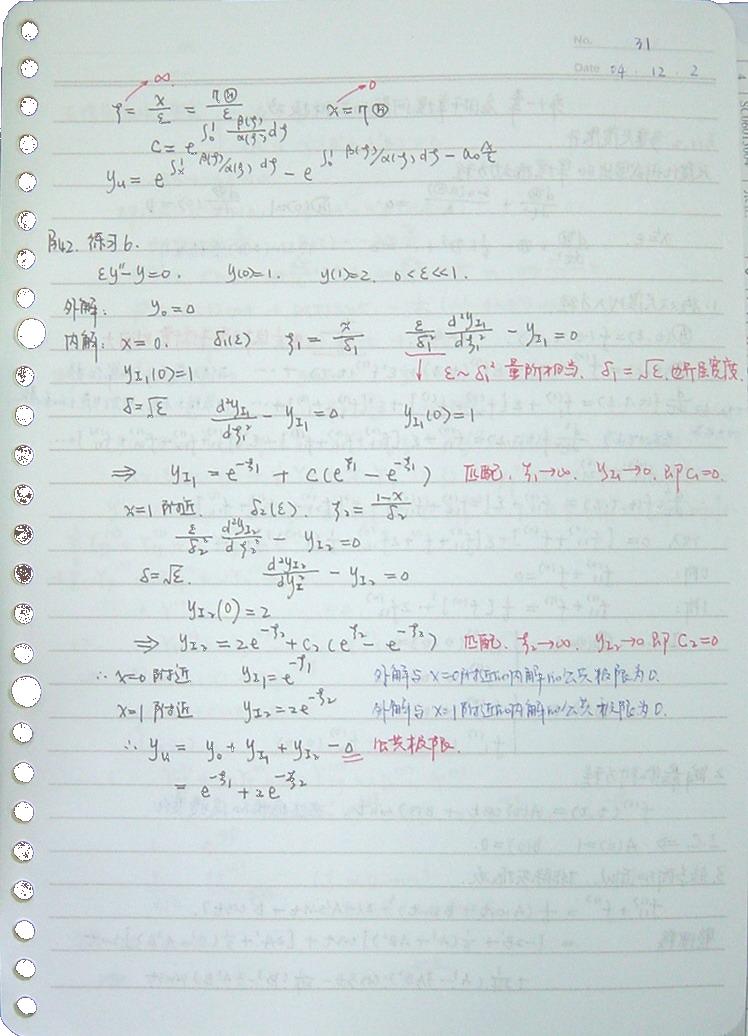 No. 31
Date 04 . 12 . 2
∞ 0
ζ = x/ε = ηⒽ/ε x = ηⒽ
C = e^{∫₀¹ β(ζ)/α(ζ) dζ}
y_u = e^{∫ₓ¹ β(ζ)/α(ζ) dζ} − e^{∫₀¹ β(ζ)/α(ζ) dζ − a₀ x/ε}
P42. 练习6.
εy″−y=0. y(0)=1. y(1)=2. 0<ε<<1.
外解: y₀=0
内解: x=0. δ₁(ε) ζ₁ = x/δ₁ ε/δ₁² d²y_{I₁}/dζ₁² − y_{I₁}=0
y_{I₁}(0)=1 ↓ ε~δ₁² 量阶相当. δ₁=√ε. 边界层宽度.
δ=√ε d²y_{I₁}/dζ₁² − y_{I₁}=0 y_{I₁}(0)=1
⇒ y_{I₁} = e^{−ζ₁} + C(e^{ζ₁} − e^{−ζ₁}) 匹配. ζ₁→∞. y_{I₁}→0. 即C₁=0.
x=1附近. δ₂(ε). ζ₂ = (1−x)/δ₂
ε/δ₂² d²y_{I₂}/dζ₂² − y_{I₂}=0
δ=√ε. d²y_{I₂}/dy_I² − y_{I₂}=0
y_{I₂}(0)=2
⇒ y_{I₂} = 2e^{−ζ₂} + C₂(e^{ζ₂} − e^{−ζ₂}) 匹配. ζ₂→∞. y_{I₂}→0 即C₂=0
∴ x=0附近 y_{I₁}=e^{−ζ₁} 外解与x=0附近的内解的公共极限为0.
x=1附近 y_{I₂}=2e^{−ζ₂} 外解与x=1附近的内解的公共极限为0.
∴ y_u = y₀ + y_{I₁} + y_{I₂} − 0 公共极限.
= e^{−ζ₁} + 2e^{−ζ₂}